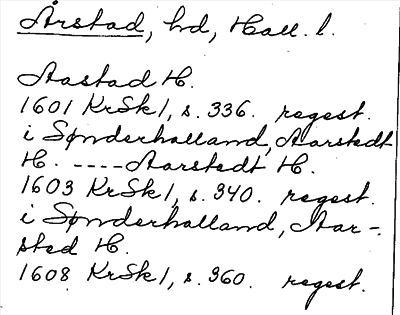 Årstad, hd, Hall. l.
Aastad H.
1601 KrSk1, s. 336. regest.
i Sønderhalland, Aarstedt
H. ---- Aarstedt H.
1603 KrSk1, s. 340. regest.
i Sønderhalland, Aar-
sted H.
1608 KrSk1, s. 360. regest.